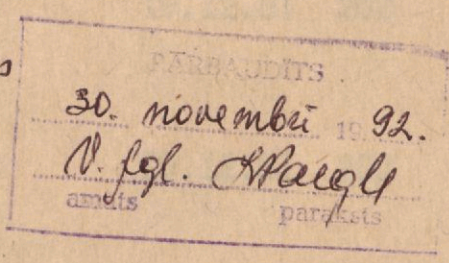 PĀRBAUDĪTS
30. novembrī 1992.
V. fgl.
amats paraksts